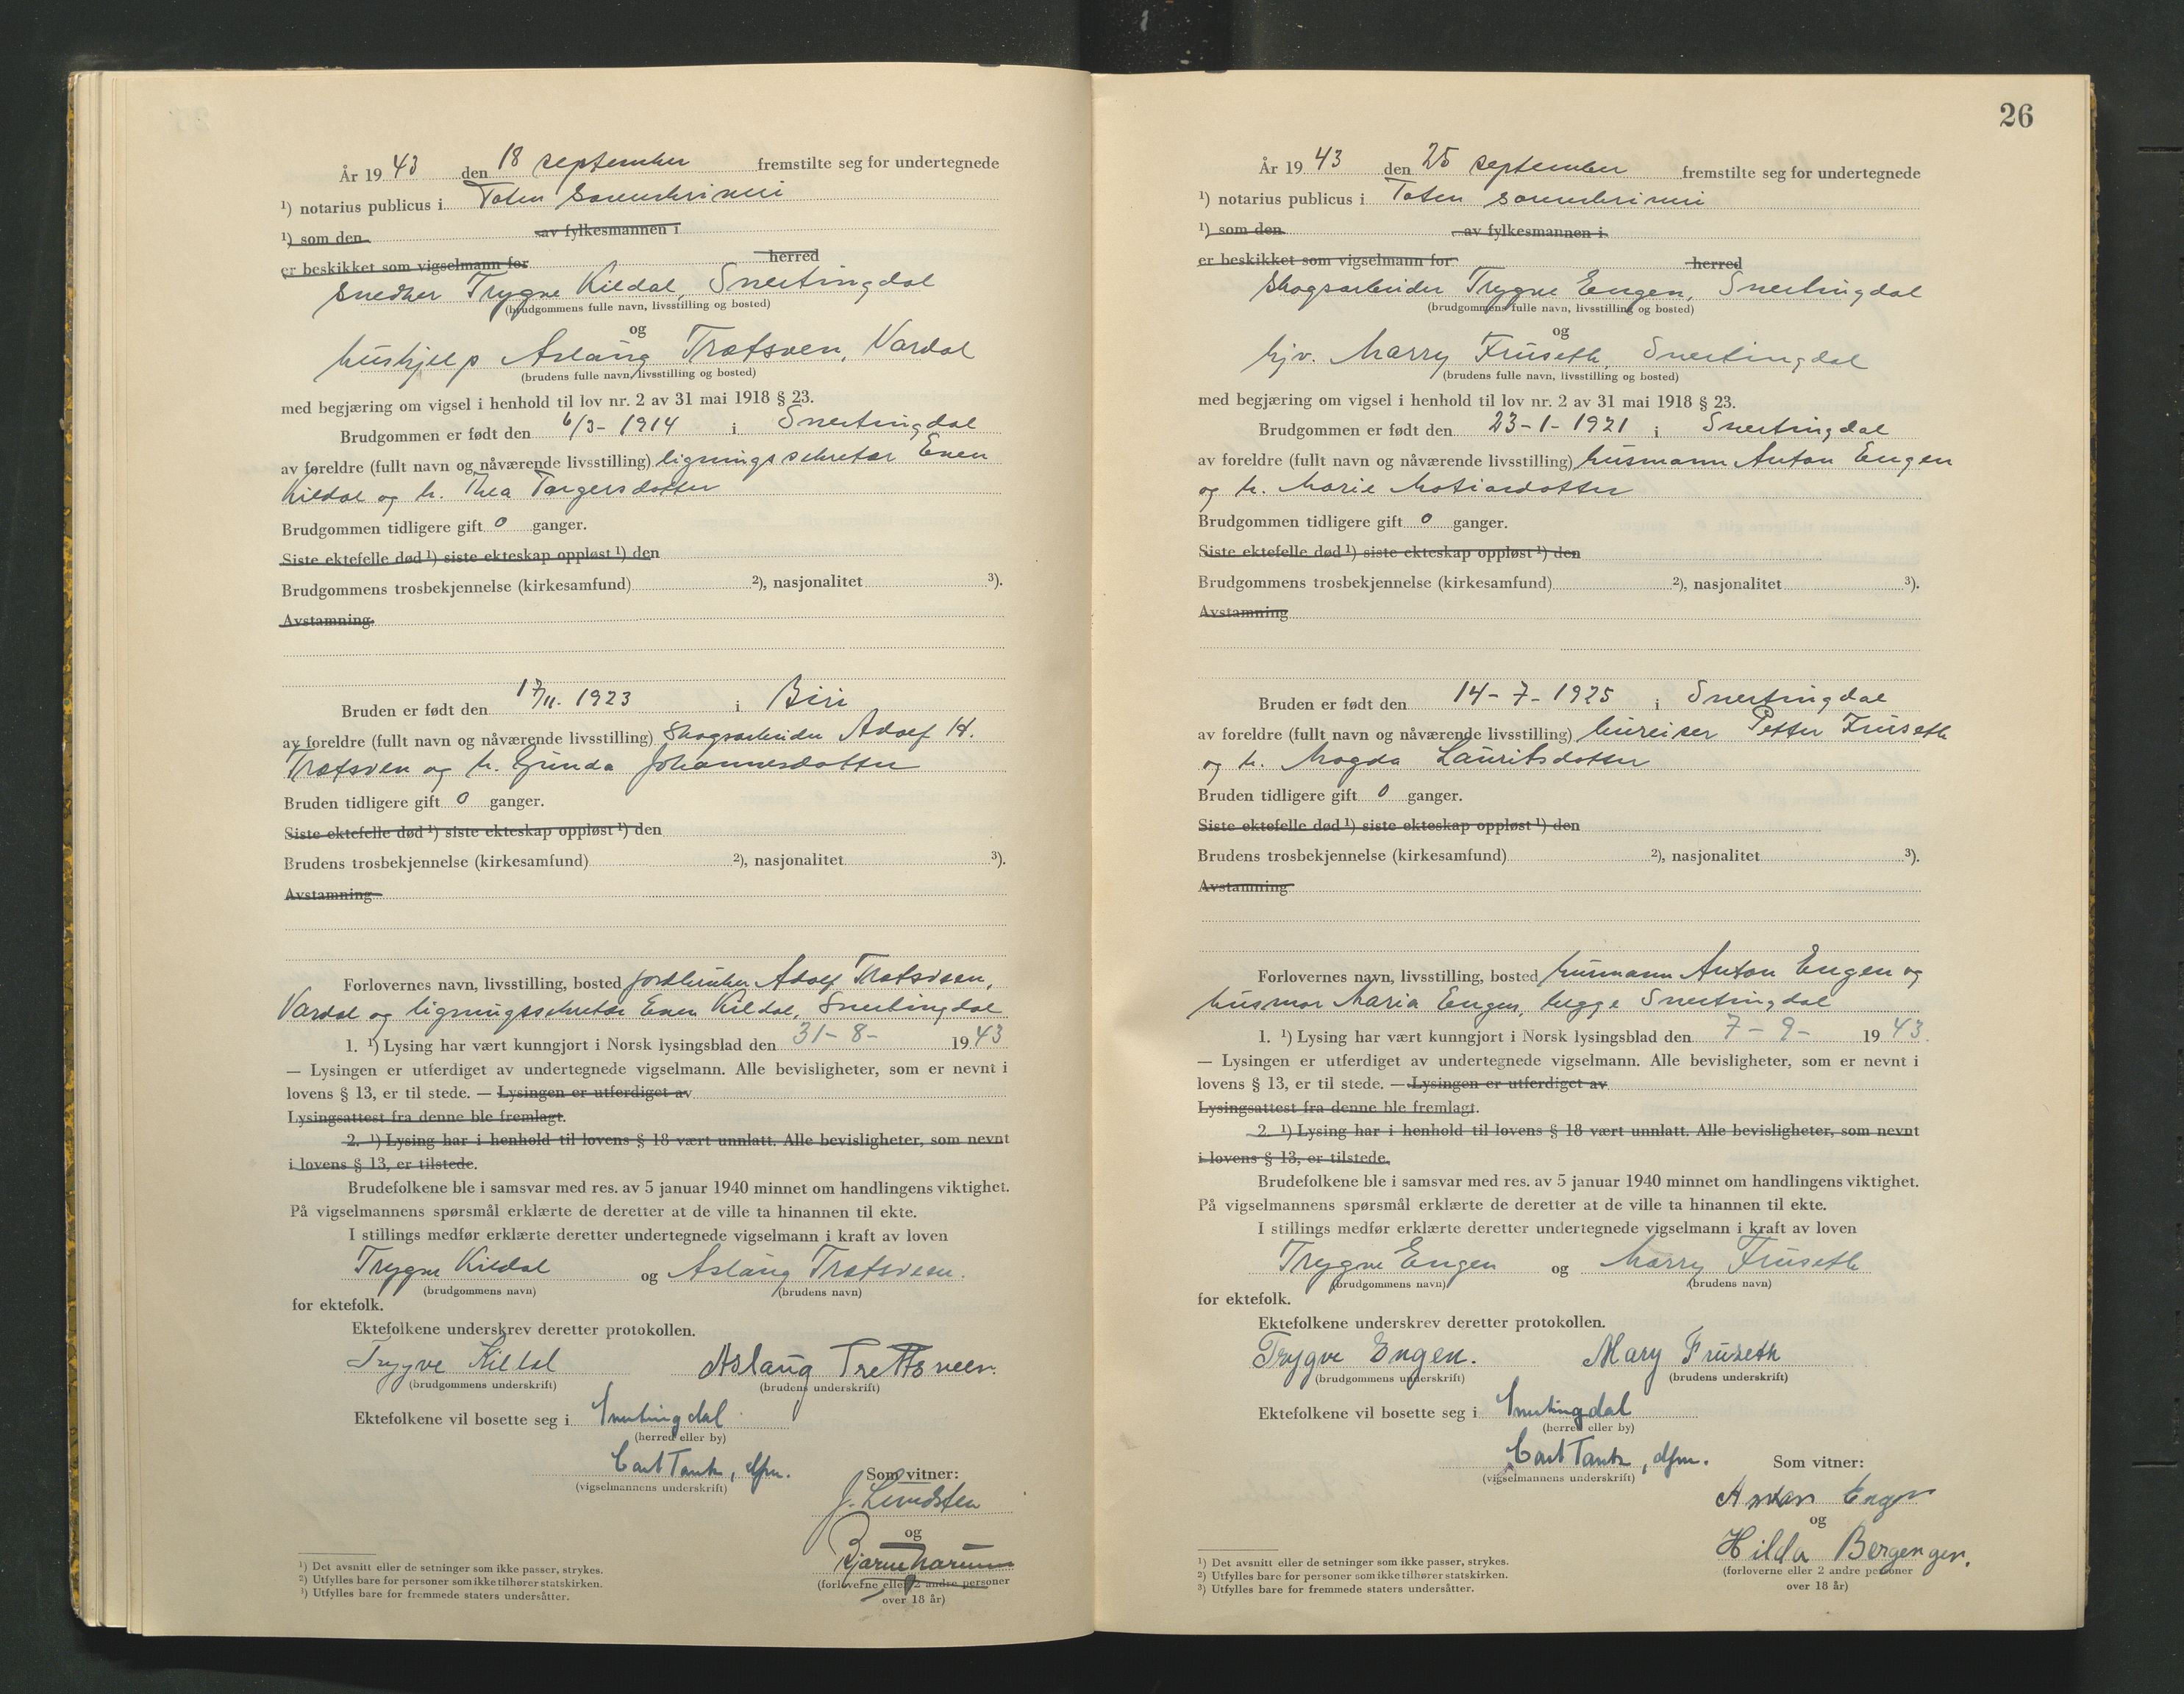 År 19 43 den 18 september fremstilte seg for undertegnede
¹) notarius publicus i Toten sorenskriveri
¹) som den av fylkesmannen i
er beskikket som vigselmann for herred
Snedker Trygve Kildal, Snertingdal
(brudgommens fulle navn, livsstilling og bosted)
og
hushjelp Aslaug Trætsven, Vardal
(brudens fulle navn, livsstilling og bosted)
med begjæring om vigsel i henhold til lov nr. 2 av 31 mai 1918 § 23.
Brudgommen er født den 6/3- 1914 i Snertingdal
av foreldre (fullt navn og nåværende livsstilling) ligningssekretær Even
Kildal og h. Thea Torgersdotter
Brudgommen tidligere gift 0 ganger.
Siste ektefelle død ¹) siste ekteskap oppløst ¹) den
Brudgommens trosbekjennelse (kirkesamfund) ²), nasjonalitet ³).
Avstamning
Bruden er født den 17/11- 1923 i Biri
av foreldre (fullt navn og nåværende livsstilling) Skogsarbeider Adolf H.
Trætsven og h. Gunda Johannesdotter
Bruden tidligere gift 0 ganger.
Siste ektefelle død ¹) siste ekteskap oppløst ¹) den
Brudens trosbekjennelse (kirkesamfund) ²), nasjonalitet ³).
Avstamning
Forlovernes navn, livsstilling, bosted jordbruker Adolf Trætsveen,
Vardal og ligningssekretær Even Kildal, Snertingdal
1. ¹) Lysing har vært kunngjort i Norsk lysingsblad den 31- 8- 19 43
— Lysingen er utferdiget av undertegnede vigselmann. Alle bevisligheter, som er nevnt i
lovens § 13, er til stede. — Lysingen er utferdiget av
Lysingsattest fra denne ble fremlagt.
2. ¹) Lysing har i henhold til lovens § 18 vært unnlatt. Alle bevisligheter, som nevnt
i lovens § 13, er tilstede.
Brudefolkene ble i samsvar med res. av 5 januar 1940 minnet om handlingens viktighet.
På vigselmannens spørsmål erklærte de deretter at de ville ta hinannen til ekte.
I stillings medfør erklærte deretter undertegnede vigselmann i kraft av loven
Trygve Kildal og Aslaug Trætsveen.
(brudgommens navn) (brudens navn)
for ektefolk.
Ektefolkene underskrev deretter protokollen.
Trygve Kildal Aslaug Trettsveen.
(brudgommens underskrift) (brudens underskrift)
Ektefolkene vil bosette seg i Snertingdal
(herred eller by)
Carl Tank, dfm.
(vigselmannens underskrift)
Som vitner:
J. Lundsten
og
Bjarne
(forloverne eller 2 andre personer
over 18 år)
¹) Det avsnitt eller de setninger som ikke passer, strykes.
²) Utfylles bare for personer som ikke tilhører statskirken.
³) Utfylles bare for fremmede staters undersåtter.
26
År 19 43 den 25 september fremstilte seg for undertegnede
¹) notarius publicus i Toten sorenskriveri
¹) som den av fylkesmannen i
er beskikket som vigselmann for herred
Skogsarbeider Trygve Engen, Snertingdal
(brudgommens fulle navn, livsstilling og bosted)
og
hjv. Marry Fruseth, Snertingdal
(brudens fulle navn, livsstilling og bosted)
med begjæring om vigsel i henhold til lov nr. 2 av 31 mai 1918 § 23.
Brudgommen er født den 23-1-1921 i Snertingdal
av foreldre (fullt navn og nåværende livsstilling) husmann Anton Engen
og h. Marie Matiasdotter
Brudgommen tidligere gift 0 ganger.
Siste ektefelle død ¹) siste ekteskap oppløst ¹) den
Brudgommens trosbekjennelse (kirkesamfund) ²), nasjonalitet ³).
Avstamning
Bruden er født den 14-7-1925 i Snertingdal
av foreldre (fullt navn og nåværende livsstilling) bureiser Petter Fruseth
og h. Magda Lauritsdotter
Bruden tidligere gift 0 ganger.
Siste ektefelle død ¹) siste ekteskap oppløst ¹) den
Brudens trosbekjennelse (kirkesamfund) ²), nasjonalitet ³).
Avstamning
Forlovernes navn, livsstilling, bosted husmann Anton Engen og
husmor Maria Engen, begge Snertingdal
1. ¹) Lysing har vært kunngjort i Norsk lysingsblad den 7- 9- 19 43.
— Lysingen er utferdiget av undertegnede vigselmann. Alle bevisligheter, som er nevnt i
lovens § 13, er til stede. — Lysingen er utferdiget av
Lysingsattest fra denne ble fremlagt.
2. ¹) Lysing har i henhold til lovens § 18 vært unnlatt. Alle bevisligheter, som nevnt
i lovens § 13, er tilstede.
Brudefolkene ble i samsvar med res. av 5 januar 1940 minnet om handlingens viktighet.
På vigselmannens spørsmål erklærte de deretter at de ville ta hinannen til ekte.
I stillings medfør erklærte deretter undertegnede vigselmann i kraft av loven
Trygve Engen og Marry Fruseth
(brudgommens navn) (brudens navn)
for ektefolk.
Ektefolkene underskrev deretter protokollen.
Trygve Engen. Mary Fruseth
(brudgommens underskrift) (brudens underskrift)
Ektefolkene vil bosette seg i Snertingdal
(herred eller by)
Carl Tank, dfm.
(vigselmannens underskrift)
Som vitner:
Anton Engen
og
Hilda Bergengen.
(forloverne eller 2 andre personer
over 18 år)
¹) Det avsnitt eller de setninger som ikke passer, strykes.
²) Utfylles bare for personer som ikke tilhører statskirken.
³) Utfylles bare for fremmede staters undersåtter.